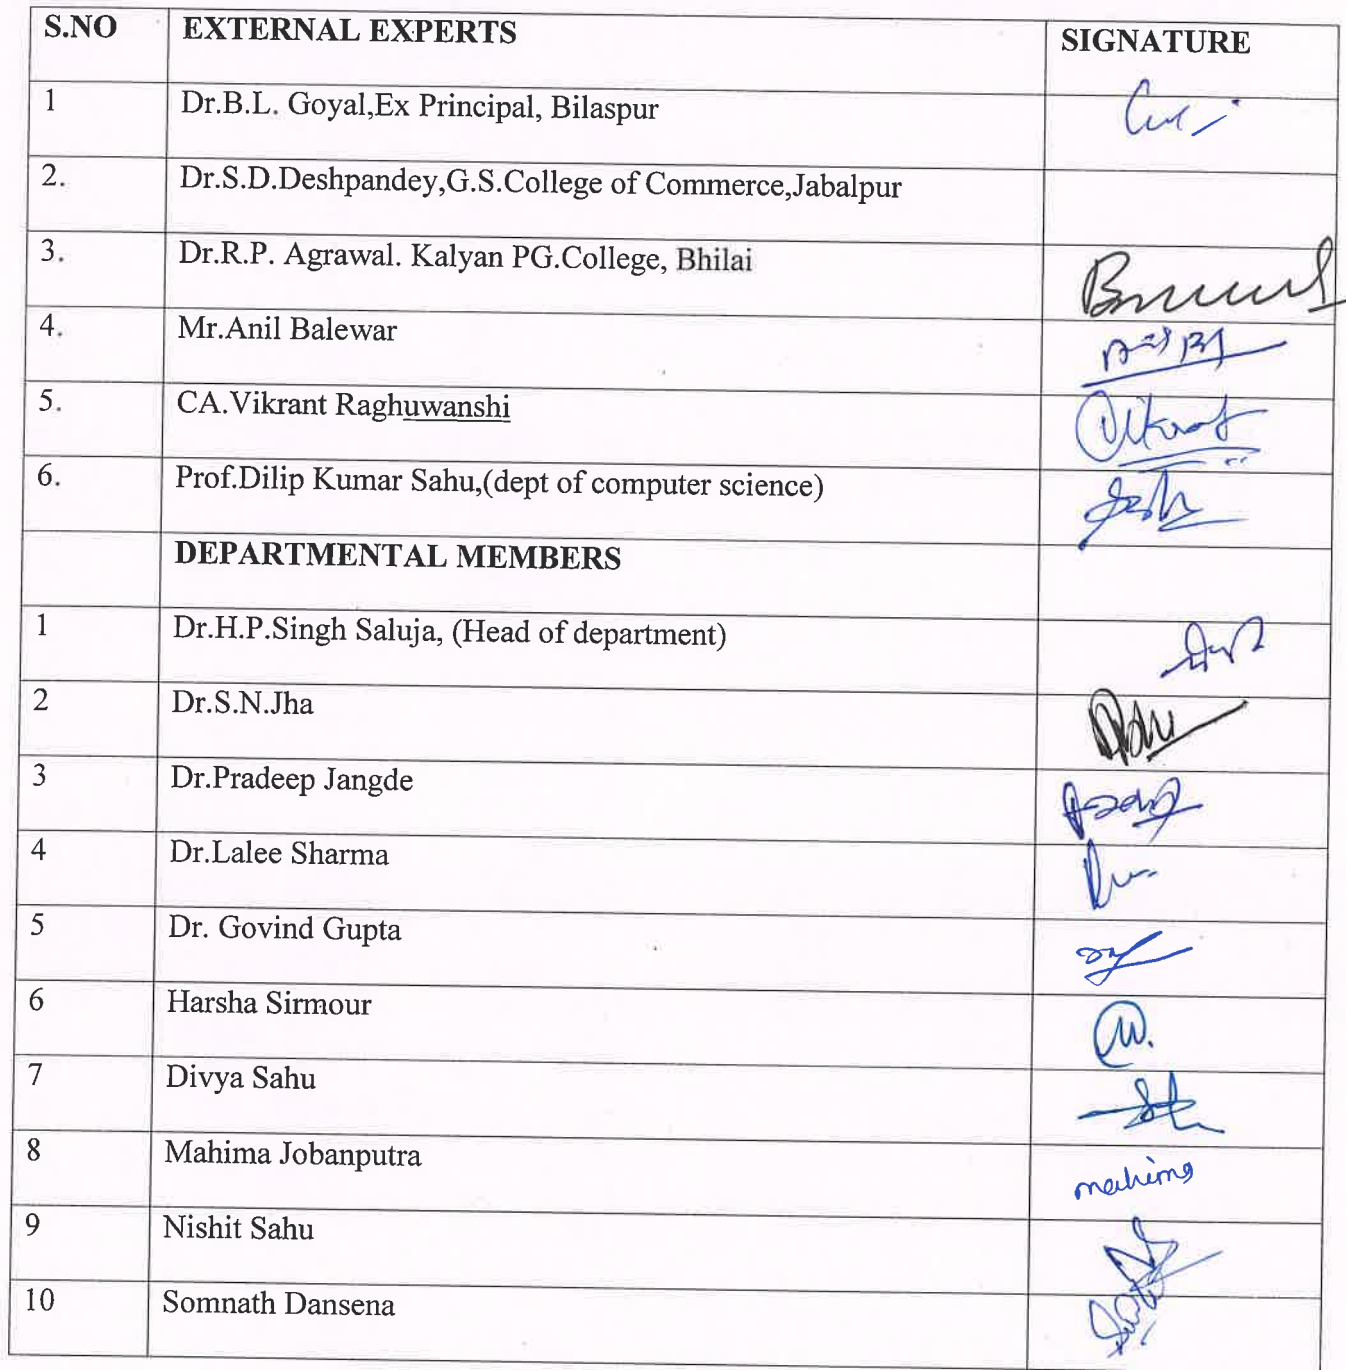 S.NO EXTERNAL EXPERTS SIGNATURE
1 Dr.B.L. Goyal,Ex Principal, Bilaspur
2. Dr.S.D.Deshpandey,G.S.College of Commerce,Jabalpur
3. Dr.R.P. Agrawal. Kalyan PG.College, Bhilai
4. Mr.Anil Balewar
5. CA.Vikrant Raghuwanshi Vikrant
6. Prof.Dilip Kumar Sahu,(dept of computer science)
DEPARTMENTAL MEMBERS
1 Dr.H.P.Singh Saluja, (Head of department)
2 Dr.S.N.Jha
3 Dr.Pradeep Jangde
4 Dr.Lalee Sharma
5 Dr. Govind Gupta
6 Harsha Sirmour
7 Divya Sahu
8 Mahima Jobanputra mahima
9 Nishit Sahu
10 Somnath Dansena